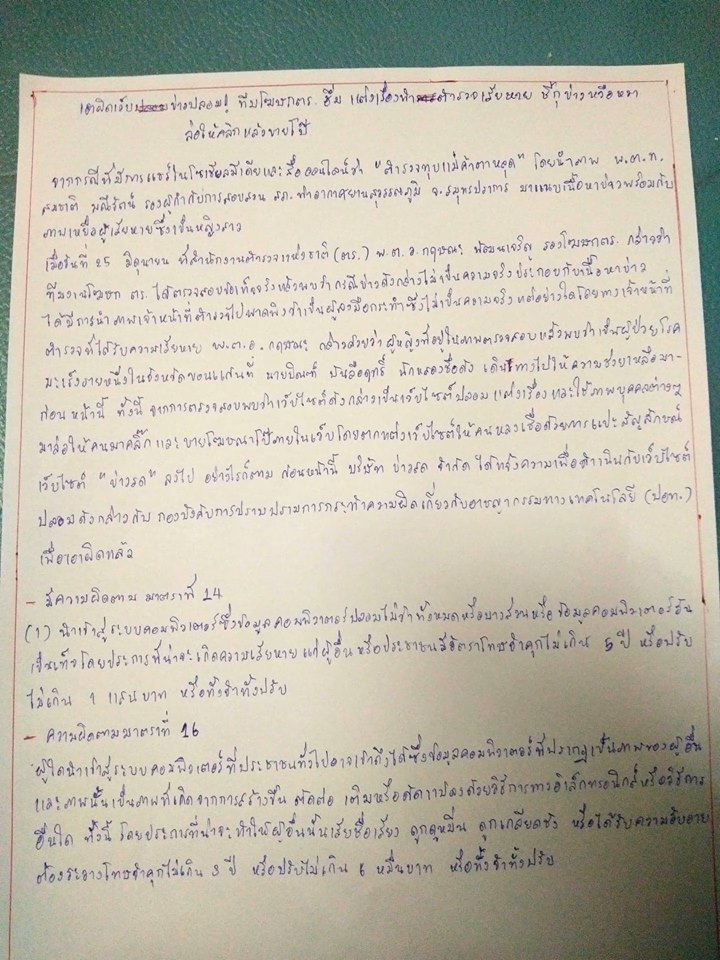 เอาผิดเว็บข่าวปลอม! ทีมโฆษกตร. ฮึ่ม แต่งเรื่องทำตำรวจเสียหาย ชี้กุข่าวหวือหวา
ล่อให้คลิกแล้วขายโป๊
จากกรณีที่มีการแชร์ในโซเชียลมีเดียและสื่อออนไลน์ว่า "ตำรวจทุบแม่ค้าตาหลุด" โดยนำภาพ พ.ต.ท.
สมชาติ มณีรัตน์ รองผู้กำกับการสอบสวน สภ.ท่าอากาศยานสุวรรณภูมิ จ.สมุทรปราการ มาแนบเนื้อหาข่าวพร้อมกับ
ภาพเหยื่อผู้เสียหายซึ่งเป็นหญิงสาว
เมื่อวันที่ 25 มิถุนายน ที่สำนักงานตำรวจแห่งชาติ (ตร.) พ.ต.อ.กฤษณะ พัฒนเจริญ รองโฆษกตร. กล่าวว่า
ทีมงานโฆษก ตร. ได้ตรวจสอบข้อเท็จจริงแล้วพบว่า กรณีข่าวดังกล่าวไม่เป็นความจริง ประกอบกับเนื้อหาข่าว
ได้มีการนำภาพเจ้าหน้าที่ตำรวจไปพาดพิงว่าเป็นผู้ลงมือกระทำซึ่งไม่เป็นความจริงแต่อย่างใดโดยทางเจ้าหน้าที่
ตำรวจที่ได้รับความเสียหาย พ.ต.อ. กฤษณะ กล่าวด้วยว่า ผู้หญิงที่อยู่ในภาพตรวจสอบแล้วพบว่าเป็นผู้ป่วยโรค
มะเร็งรายหนึ่งในจังหวัดขอนแก่นที่ นายบิณฑ์ บันลือฤทธิ์ นักแสดงชื่อดัง เดินทางไปให้ความช่วยเหลือมา-
ก่อนหน้านี้ ทั้งนี้ จากการตรวจสอบพบว่าเว็บไซต์ดังกล่าวเป็นเว็บไซต์ปลอม แต่งเรื่อง และใช้ภาพบุคคลต่างๆ
มาล่อให้คนมาคลิ๊ก และขายโฆษณาโป๊ภายในเว็บโดยตกแต่งเว็บไซต์ให้คนหลงเชื่อด้วยการแปะสัญลักษณ์
เว็บไซต์ "ข่าวสด" ลงไป อย่างไรก็ตาม ก่อนหน้านี้ บริษัท ข่าวสด จำกัด ได้แจ้งความเพื่อดำเนินกับเว็บไซต์
ปลอมดังกล่าวกับ กองบังคับการปราบปรามการกระทำความผิดเกี่ยวกับอาชญากรรมทางเทคโนโลยี (ปอท.)
เพื่อเอาผิดแล้ว
- มีความผิดตาม มาตราที่ 14
(1) นำเข้าสู่ระบบคอมพิวเตอร์ซึ่งข้อมูลคอมพิวเตอร์ปลอมไม่ว่าทั้งหมดหรือบางส่วนหรือ ข้อมูลคอมพิวเตอร์อัน
เป็นเท็จโดยประการที่น่าจะเกิดความเสียหายแก่ผู้อื่น หรือประชาชนมีอัตราโทษจำคุกไม่เกิน 5 ปี หรือปรับ
ไม่เกิน 1 แสนบาท หรือทั้งจำทั้งปรับ
- ความผิดตามมาตราที่ 16
ผู้ใดนำเข้าสู่ระบบคอมพิวเตอร์ที่ประชาชนทั่วไปอาจเข้าถึงได้ซึ่งข้อมูลคอมพิวเตอร์ที่ปรากฏเป็นภาพของผู้อื่น
และภาพนั้นเป็นภาพที่เกิดจากการสร้างขึ้น ตัดต่อ เติมหรือดัดแปลงด้วยวิธีการทางอิเล็กทรอนิกส์หรือวิธีการ
อื่นใด ทั้งนี้ โดยประการที่น่าจะทำให้ผู้อื่นนั้นเสียชื่อเสียง ถูกดูหมิ่น ถูกเกลียดชัง หรือได้รับความอับอาย
ต้องระวางโทษจำคุกไม่เกิน 3 ปี หรือปรับไม่เกิน 6 หมื่นบาท หรือทั้งจำทั้งปรับ